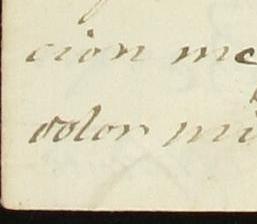 cion me
dolor mi